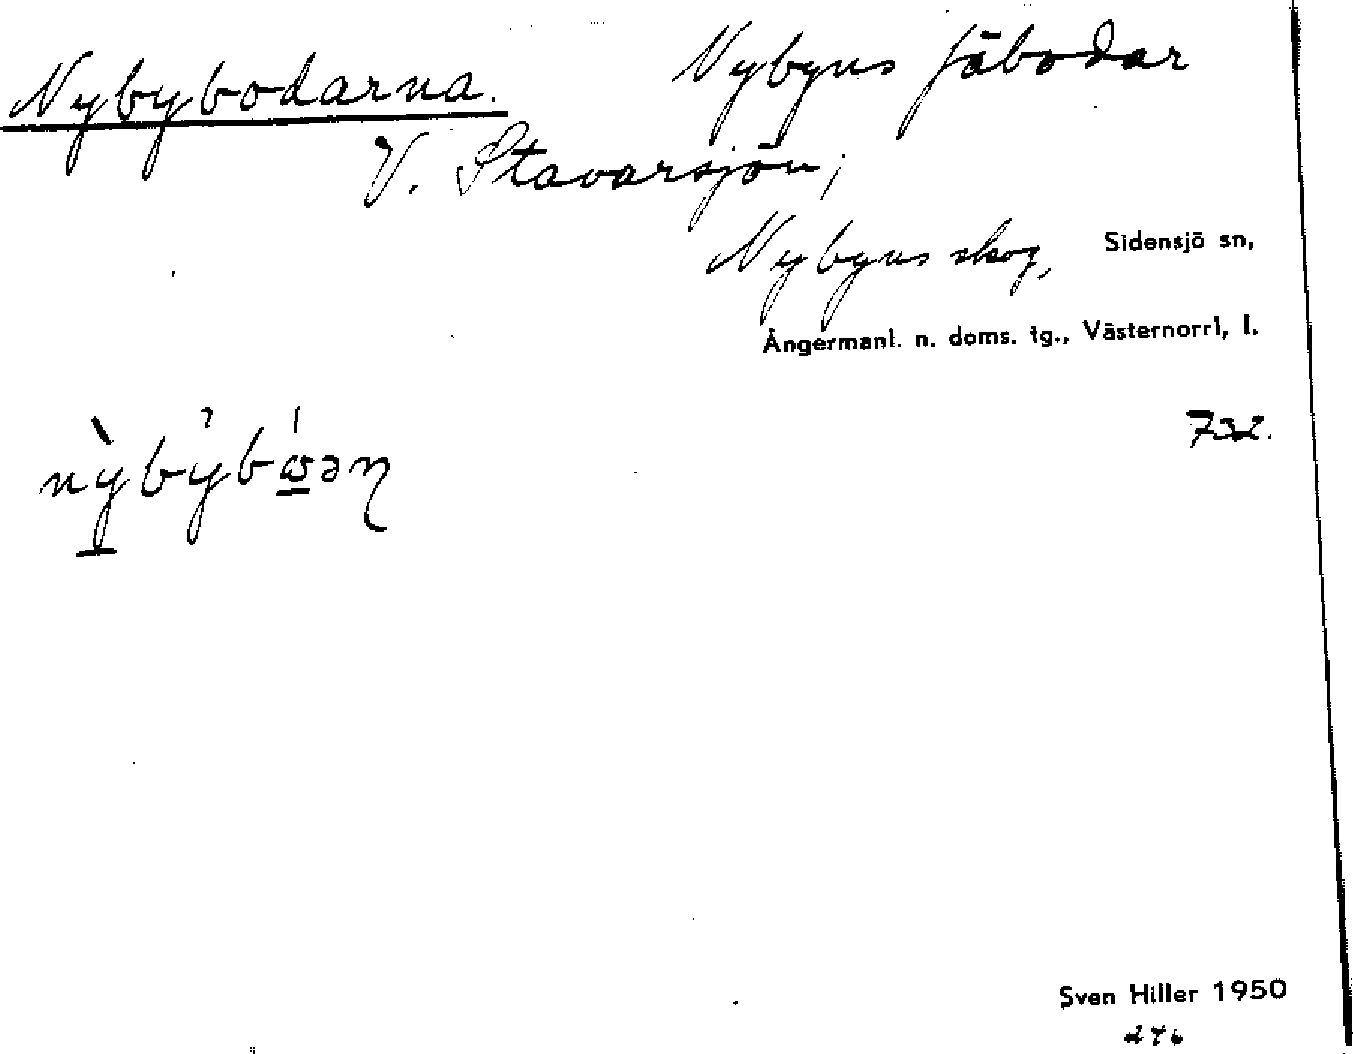 Nybybodarna. Nybyns fäbodar
V. Stavarsjön,
Nybyns skog, Sidensjö sn,
Ångermanl. n. doms. tg., Västernorrl, l.
732.
Sven Hiller 1950